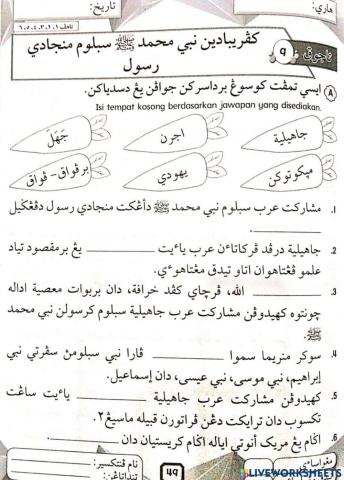 هاري:
تاريخ:
تاهف ١،٢،٣،٤،٥،٦
تاجوق ٩
کڤريبادين نبي محمد ﷺ سبلوم منجادي
رسول
A ايسي تمڤت کوسوڠ برداسرکن جواڤن يڠ دسدياکن.
Isi tempat kosong berdasarkan jawapan yang disediakan.
جاهيلية
اجرن
جَهَل
مڽکوتوکن
يهودي
برڤواق - ڤواق
١. مشارکت عرب سبلوم نبي محمد ﷺ دأڠکت منجادي رسول دڤڠݢيل
٢. جاهيلية درڤد ڤرکاتاءن عرب ياءيت ________ يڠ برمقصود تياد
علمو ڤڠتاهوان اتاو تيدق مڠتاهوءي.
٣. ________ الله، ڤرچاي کڤد خرافة، دان بربوات معصية اداله
چونتوه کهيدوڤن مشارکت عرب جاهيلية سبلوم کرسولن نبي محمد
ﷺ.
٤. سوکر منريما سموا ________ ڤارا نبي سبلومڽ سڤرتي نبي
إبراهيم، نبي موسى، نبي عيسى، دان إسماعيل.
٥. کهيدوڤن مشارکت عرب جاهيلية ________ ياءيت ساڠت
تکسوب دان ترايکت دڠن ڤراتورن قبيله ماسيڠ٢.
٦. اݢام يڠ مريک أنوتي اياله اݢام کريستيان دان ________.
٤٩
LIVEWORKSHEETS